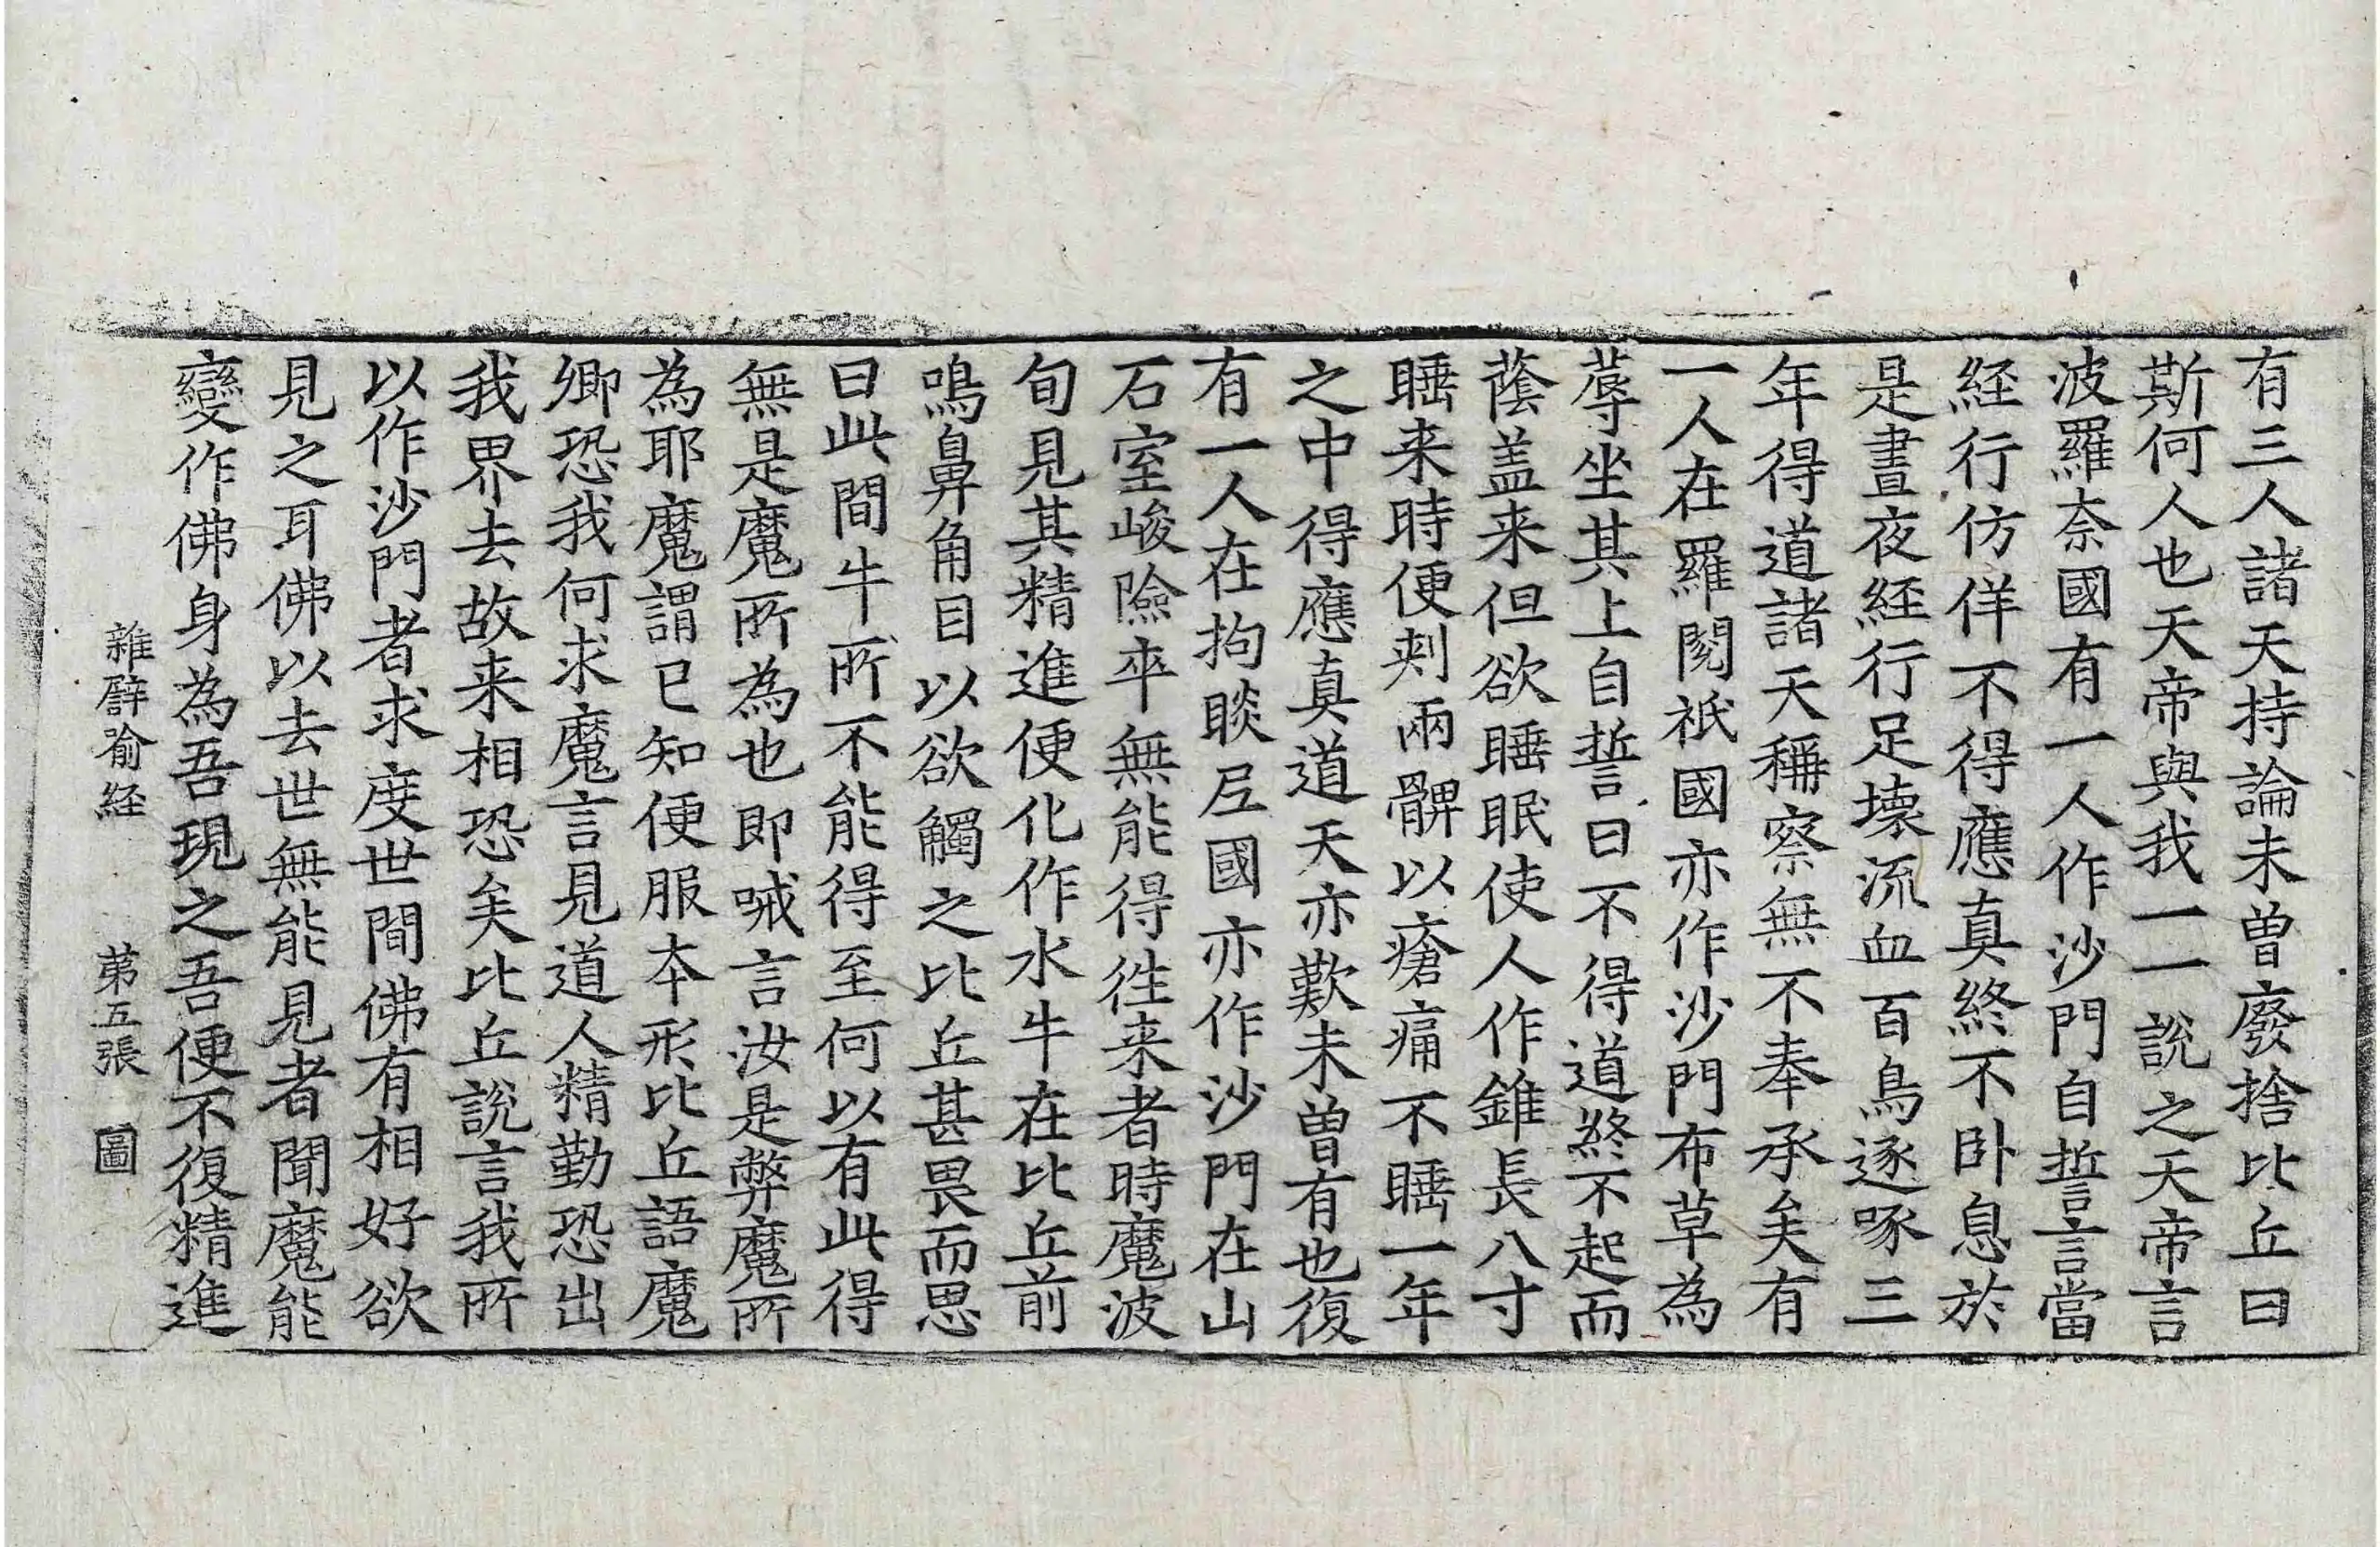 有三人諸天持論未曽廢捨比丘曰
斯何人也天帝與我一一說之天帝言
波羅奈國有一人作沙門自誓言當
経行仿佯不得應真終不卧息於
是晝夜経行足壊流血百鳥逐啄三
年得道諸天稱察無不奉承矣有
一人在羅閱祇國亦作沙門布草為
蓐坐其上自誓曰不得道終不起而
蔭盖来但欲睡眠使人作錐長八寸
睡来時便刾兩髀以瘡痛不睡一年
之中得應真道天亦歎未曽有也復
有一人在拘睒𡰱國亦作沙門在山
石室峻險卒無能得徃来者時魔波
旬見其精進便化作水牛在比丘前
鳴鼻角目以欲觸之比丘甚畏而思
曰此間牛所不能得至何以有此得
無是魔所為也即喊言汝是弊魔所
為耶魔謂已知便服夲形比丘語魔
卿恐我何求魔言見道人精勤恐出
我界去故来相恐矣比丘說言我所
以作沙門者求度世間佛有相好欲
見之耳佛以去世無能見者聞魔能
變作佛身為吾現之吾便不復精進
雜譬喻経　苐五張　圖